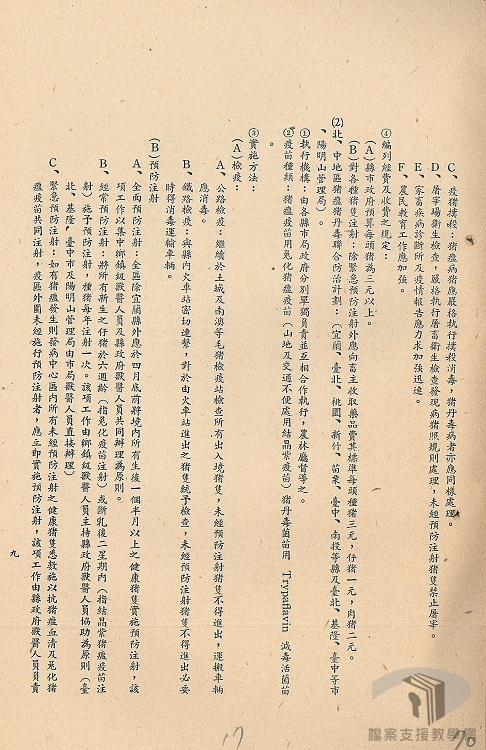 C、疫猪撲殺：猪瘟病猪應嚴格執行撲殺消毒，猪丹毒病者亦應同樣處理。
D、屠宰場衛生檢查，嚴格執行屠畜衛生檢查發現病猪照規則處理，未經預防注射猪隻禁止屠宰。
E、家畜疾病診斷所及疫情報告應力求加強迅速。
F、農民教育工作應加強。
④編列經費及收費之規定：
(A)縣市政府預算每頭猪為三元以上。
(B)對各種猪隻注射：除緊急預防注射外應向畜主收取藥品費其標準每頭種猪三元，仔猪一元，肉猪二元。
(2)北、中地區猪瘟猪丹毒聯合防治計劃：（宜蘭、臺北、桃園、新竹、苗栗、臺中、南投等縣及臺北、基隆、臺中等市
、陽明山管理局）。
①執行機構：由各縣市局政府分別單獨負責並互相合作執行，農林廳督導之。
②疫苗種類：猪瘟疫苗用兎化猪瘟疫苗（山地及交通不便處用結晶紫疫苗）猪丹毒菌苗用 Trypaflavin 減毒活菌苗
。
③實施方法：
(A)檢疫：
A、公路檢疫：繼續於土城及南濱等毛猪檢疫站檢查所有出入境猪隻，未經預防注射猪隻不得進出，運搬車輛
應消毒。
B、鐵路檢疫：與縣內火車站密切連繫，對於由火車站進出之猪隻統予檢查，未經預防注射猪隻不得進出必要
時得消毒運輸車輛。
(B)預防注射
A、全面預防注射：全區除宜蘭縣外應於四月底前將境內所有生後一個半月以上之健康猪隻實施預防注射，該
項工作以集中鄉鎮級獸醫人員及縣政府獸醫人員共同辦理為原則。
B、經常預防注射：將所有新生之仔猪於六週齡（指兎化疫苗注射）或斷乳後二星期內（指結晶紫猪瘟疫苗注
射）施予預防注射，種猪每年注射一次。該項工作由鄉鎮級獸醫人員主持縣政府獸醫人員協助為原則（臺
北、基隆、臺中市及陽明山管理局由市局獸醫人員直接辦理）
C、緊急預防注射：如有猪瘟發生則發病中心區內所有未經預防注射之健康猪隻悉數施以抗猪瘟血清及兎化猪
瘟疫苗共同注射，疫區外圍未經施行預防注射者，應立即實施預防注射，該項工作由縣政府獸醫人員負責
九
17
檔案支援教學網